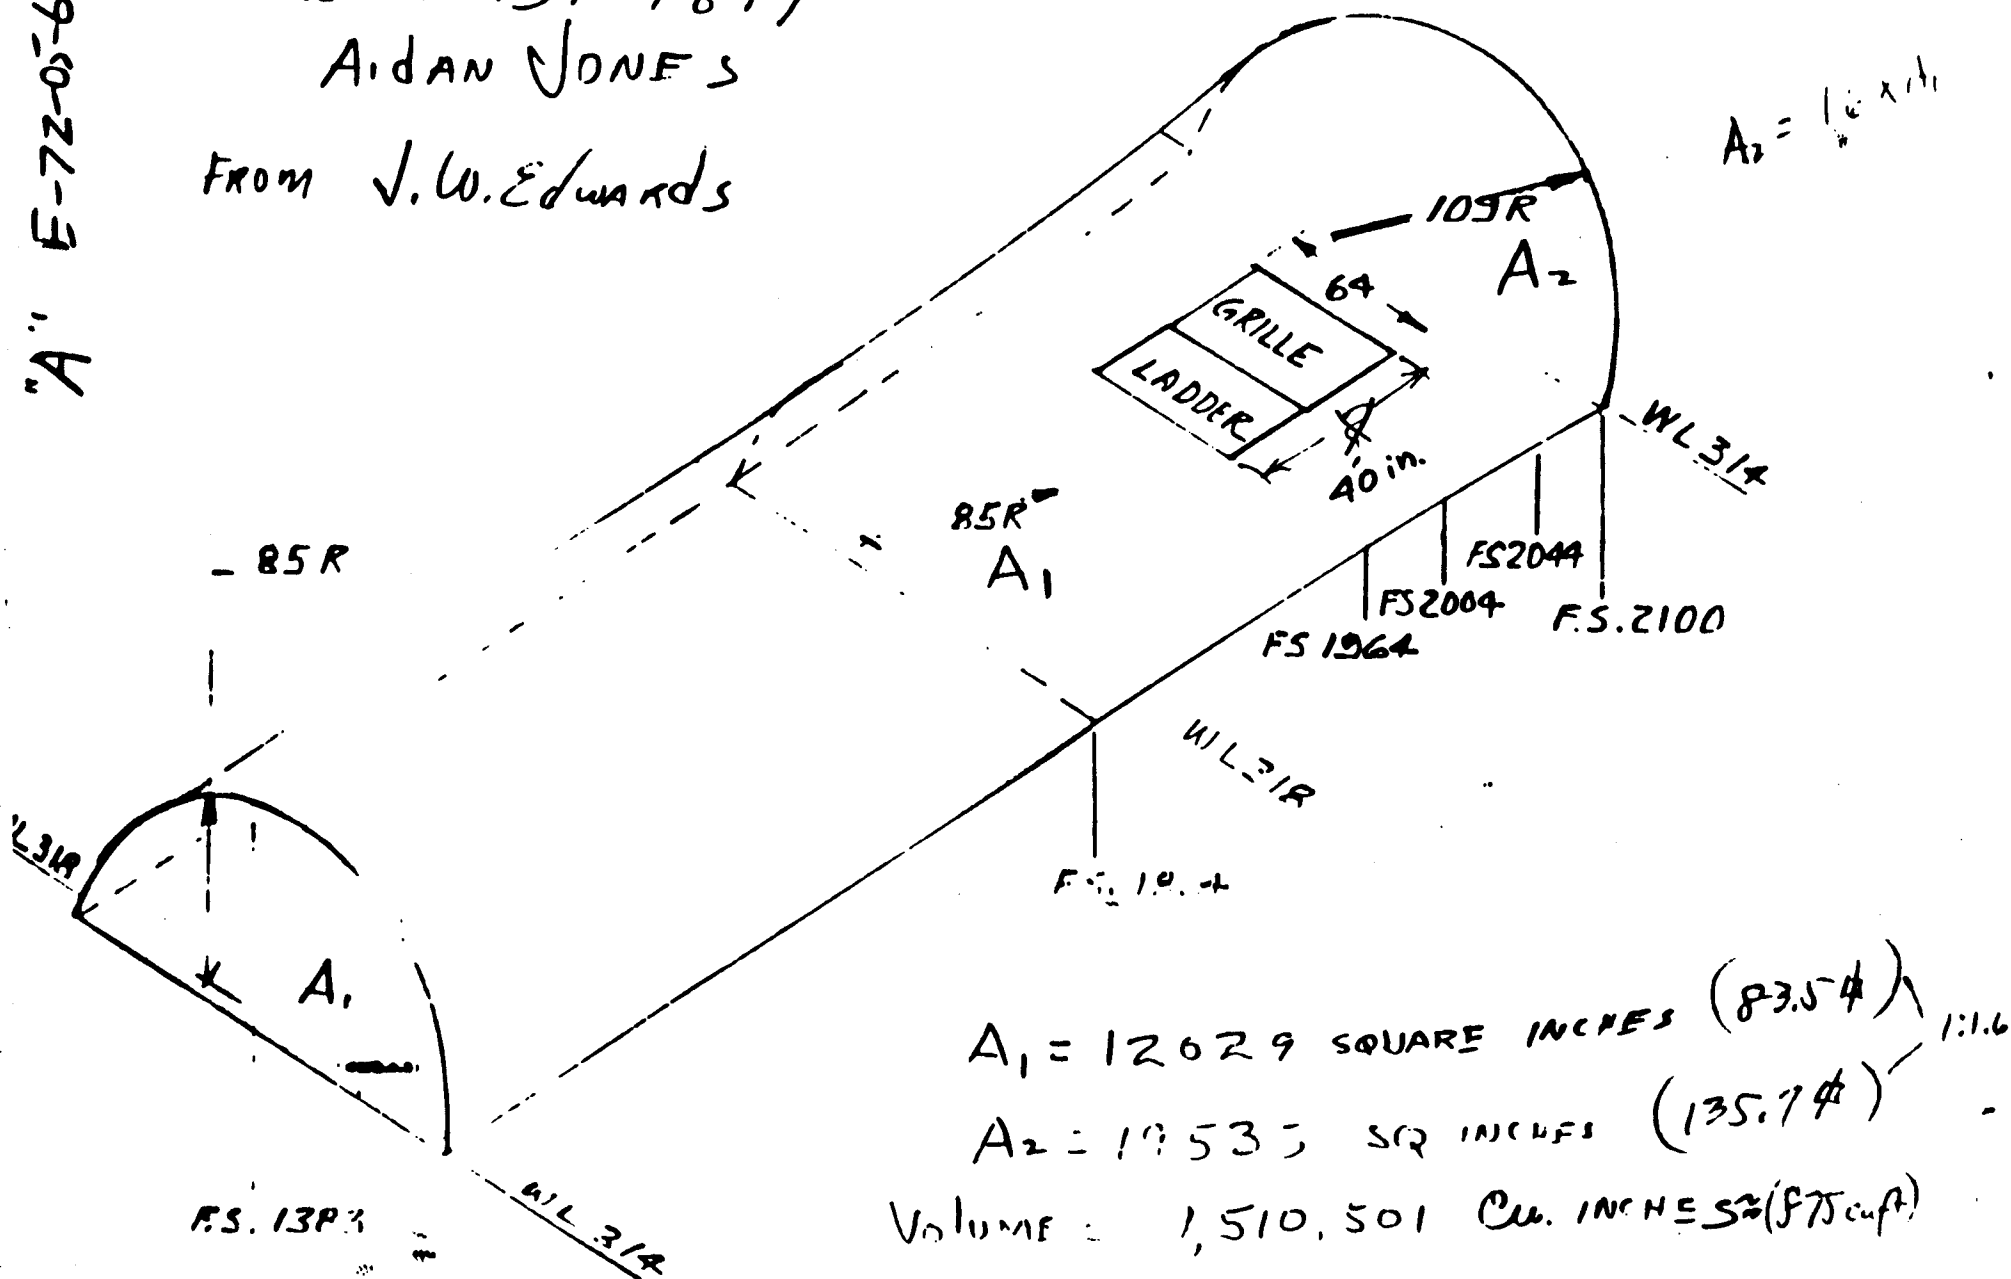 "A" E-72-05-6
AidAN JONES
FROM J.W.Edwards
A₂ =
109R
A₂
64
GRILLE
LADDER
40 in.
WL 314
85R
A₁
- 85R
FS2044
FS2004
F.S.2100
FS 1964
WL 318
A₁
A₁ = 12029 SQUARE INCHES (83.5 ⌀)
1:1.6
A₂ = SQ INCHES (135.7 ⌀)
F.S.
WL 314
VolUME = 1,510,501 Cu. INCHES ≈ (875 cuft)